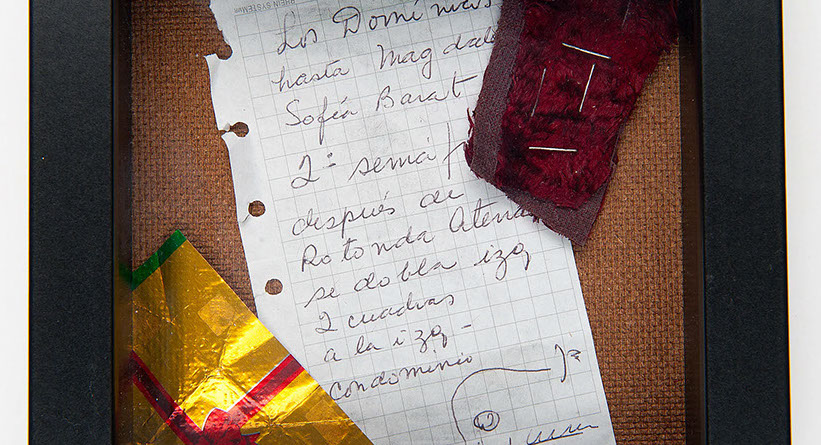 RHEIN SYSTEM
Los Domínicos
hasta Magdale
Sofía Barat
2º semáf
después de
Rotonda Atena
se dobla izq
2 cuadras
a la izq -
condominio